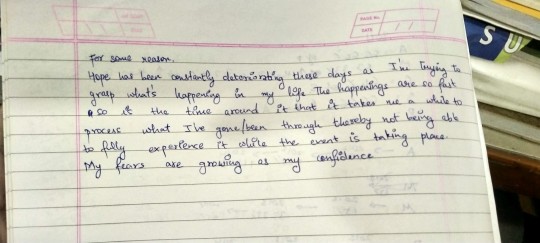 PAGE NO.
DATE
SU
For some reason,
Hope has been constantly deteriorating these days as I'm trying to
grasp what's happening in my life The happenings are so fast
so is the time around it that it takes me a while to
process what I've gone/been through thereby not being able
to fully experience it while the event is taking place.
My fears are growing as my confidence